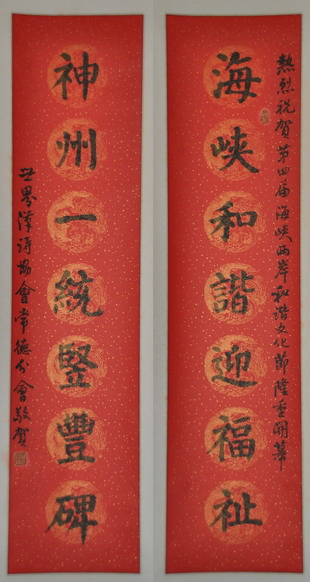 熱烈祝賀第四届海峡两岸和谐文化節隆重開幕
海峡和諧迎福祉
神州一統竪豐碑
世界漢诗協會常德分會敬賀